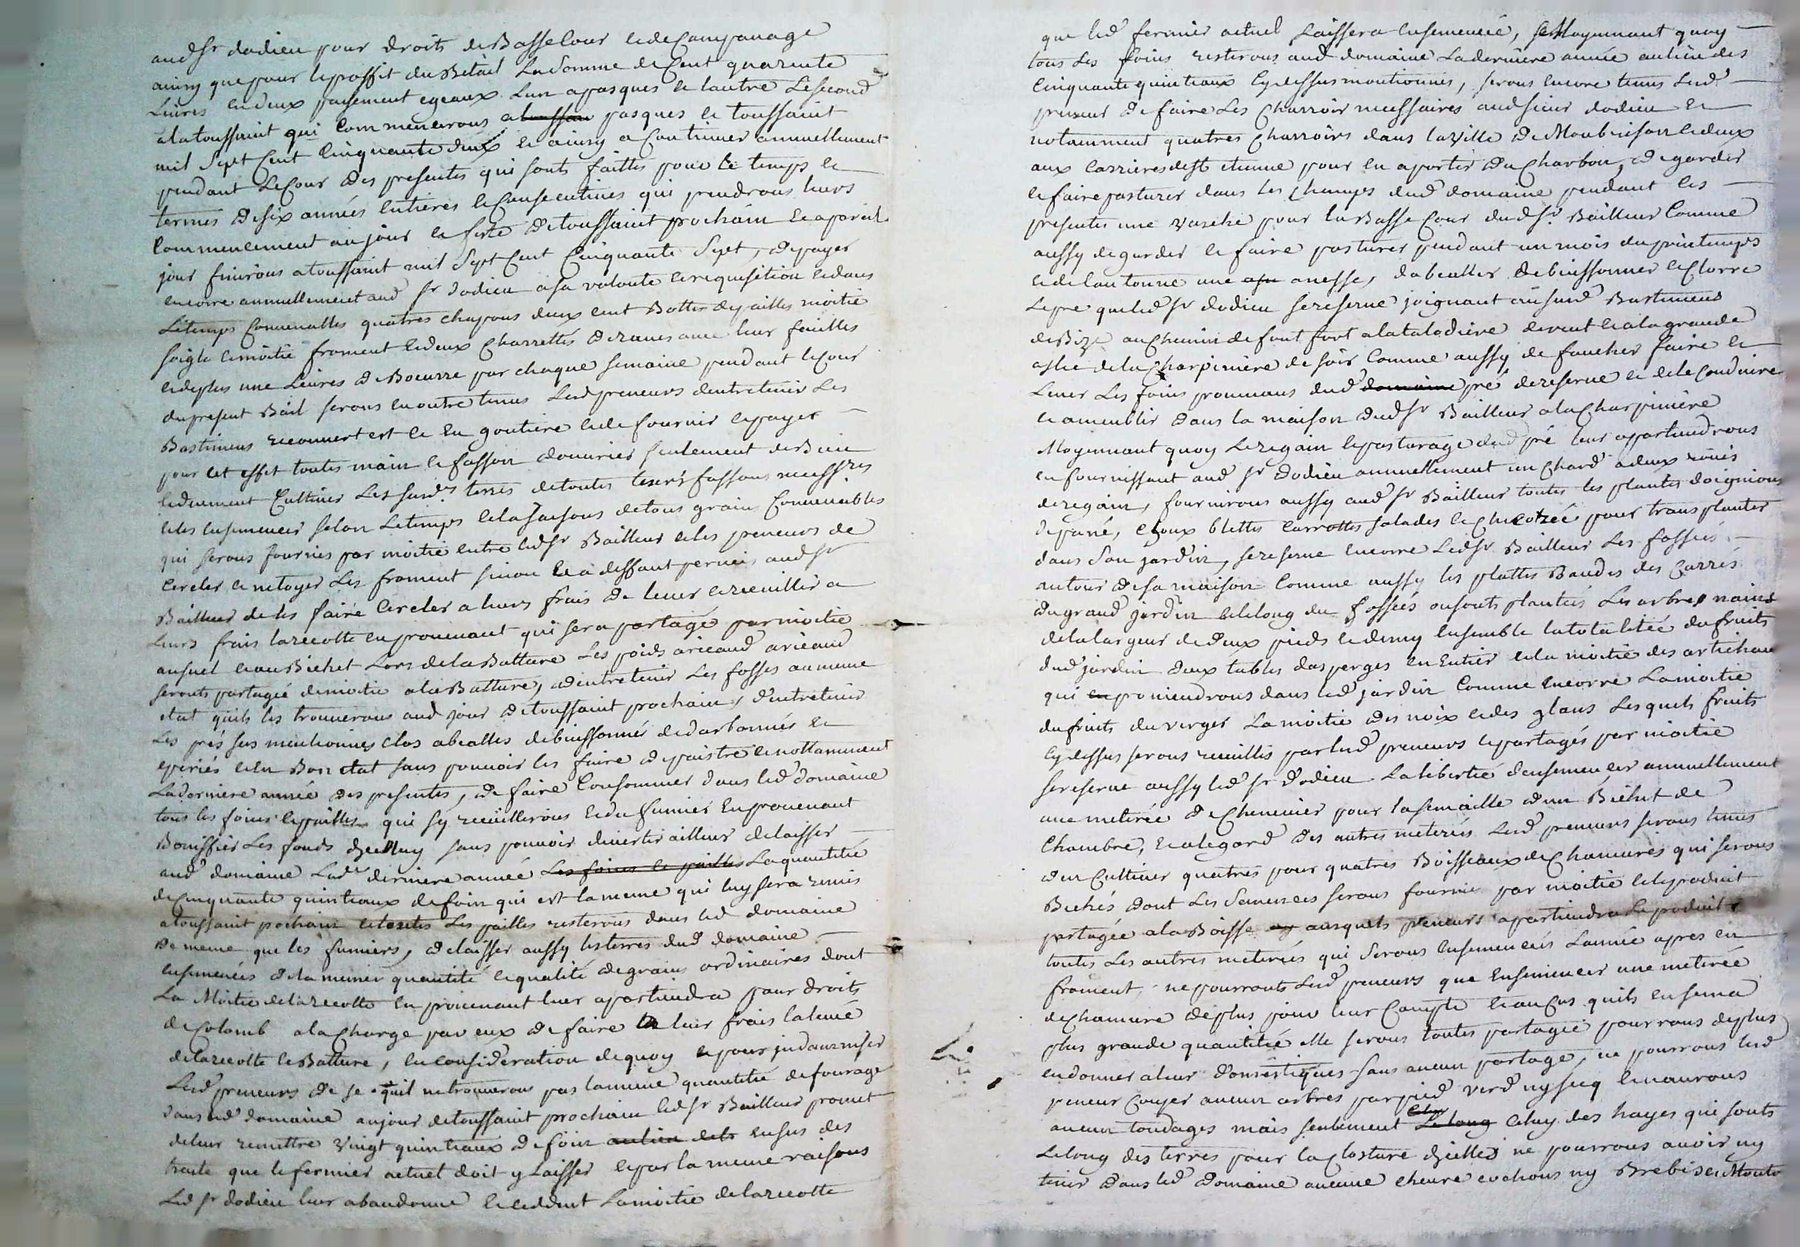 audt Sr dodieu pour droits de Basse Cour et de Campanage
ainsy que pour le proffit du Betail La Somme de Cent quarente
Livres en deux payement egeaux Lun a pasques et lautre Le second
a la toussaint qui Commencerons a toussain pasques et toussaint
mil Sept Cent Cinquante deux et ainsy a Continuer annuellement
pendant Le Cour des presentes qui sont faittes pour Le temps et
termes de six années entieres et Consecutives qui prendrons leurs
Commencement au jour et feste de toussaint prochain et a pareil
jour finirons a toussaint mil Sept Cent Cinquante Sept, de payer
encorre annuellement aud Sr dodieu a sa volonté et requisition et dans
Le temps Convenables quatres chapons deux cent Bottes de pailles moitié
soigle et moitié froment et deux Charrettes de raves avec leur feuilles
et de plus une Livres de Boeurre par chaque semaine pendant le Cour
du present Bail serons en outre tenus Lesd preneurs dentretenir Les
Bastimens recouvert et en goutiere et de fournir et payer
pour cet effet toutes main et fasson douvrier seulement de Bien
et duement Cultiver Les susd. terres de toutes leurs fassons necessres
et les ensemencer selon Le temps et la saisons de tous grains Convenables
qui serons fournies par moitié entre led Sr Bailleur et les preneurs de
Cercler et netoyer Les froment sinon et a deffaut permis aud Sr
Bailleur de les faire Cercler a leurs frais de lever et recueillir a
Leurs frais la recolte en provenant qui sera partagé par moitié
au suel et au Bichet Lors de la Batture Les poids arieaud arieaud
seronts partagé de moitié a la Batture, dentretenir Les fosses au meme
etat quils les trouverons aud jour de toussaint prochain, dentretenir
Les prés sus mentionnés Clos abealles debuissonnés et darbonnés et
eperiés et en Bon etat sans pouvoir les faire de paistre et nottamment
La derniere année des presentes, de faire Consommer dans led domaine
tous les foins et pailles qui sy recueillerons et du fumier en provenant
Bouiffier Les fonds dicelluy sans pouvoir divertir ailleur de laisser
aud domaine Lade derniere année Les foins et pailles La quantité
de Cinquante quintaux de foin qui est la meme qui luy sera remis
a toussaint prochain et toutes Les pailles resterons dans led domaine
de meme que les fumiers, de laisser aussy les terres dud domaine
ensemencés de la meme quantité et qualité de grains ordinaires dont
La Moitié de la recolte en provenant leur apartiendra pour droit
de Colomb a la Charge par eux de faire a leur frais la levée
de la recolte et Batture, en Consideration de quoy et pour jndamniser
Lesd preneurs de se quil ne trouverons pas la meme quantité de fourage
dans led domaine au jour de toussaint prochain led Sr Bailleur promet
de leur remettre vingt quintaux de foin au lieu dels en sus des
trante que le fermier actuel doit y Laisser et par la meme raisons
Led Sr dodieu leur abandonne et Cedent La moitié de la recolte
que led fermier actuel Laissera ensemencé, et Moyennant quoy
tous Les foins resterons aud domaine La derniere année au lieu des
Cinquante quintaux Cy dessus mentionnés, serons encore tenus Lesd
preneur de faire Les Charroir necessaires aud sieur dodieu et
notamment quatres Charroirs dans la ville de Montbrison et deux
aux Carrieres de St etienne pour en aporter du Charbon, de garder
et faire pasturer dans les Champs dud domaine pendant les
presentes une Vache pour la Basse Cour dud Sr Bailleur Comme
aussy de garder et faire pasturer pendant un mois du printemps
et de lautonne une anesse, dabealler debuissonner et Clorre
Le pré que led Sr dodieu se reserve joignant au susd Bastiment
de Bize au Chemin de font fort a la talodiere de vent et a la grande
aslie de la Charpiniere de soir Comme aussy de faucher faire et
Lever Les foins provenans dud domaine pré de reserve et de le Conduire
et ameublir dans la maison dud Sr Bailleur a la Charpiniere
Moyennant quoy Le regain et pasturage dud pré leur apartiendrons
en fournissant aud Sr dodieu annuellement un chard a deux roües
de regain, fournirons aussy aud Sr Bailleur toutes les plantes doignions
de pane, choux blettes Carrottes salades et chicorée pour transplanter
dans son jardin, se reserve encorre Led Sr Bailleur Les fossés
autour de sa maison Comme aussy les plattes Bandes des Carrés
du grand jardin et le long du fossés ou sont plantés Les arbres nains
de la largeur de deux pieds et demy ensemble la totalitée du fruits
dud jardin deux tables dasperges en entier et la moitié des artichau
qui en proviendrons dans led jardin Comme encorre La moitié
du fruits du verger La moitié des noix et des glans Lesquels fruits
Cy dessus serons receuillis par lesd preneurs et partagés par moitié
se reserve aussy led Sr dodieu La libertié densemencer annuellement
une meterée de Chenevier pour la semaille dun Bichet de
Chambre, et a legard des autres meterées Lesd preneurs serons tenus
den Cultiver quatres pour quatres Boisseaux de Chanures qui serons
Bechés dont Les Semences serons fournies par moitié et le produit
partagée a la Boisse ausquels preneurs apartiendra Le produit
toutes Les autres meterées qui Serons ensemencés Lannée apres en
froment, ne pourronts Lesd preneurs que ensemencer une meterée
de Chanure de plus pour leur Compte et au Cas quils en sema
plus grande quantitée elle serons toutes partagée pourrons de plus
en donner a leur domestiques sans aucun partage, ne pourrons lesd
preneur Couper aucun arbres par pied verd ny secq et nauront
aucun tondages mais seulement Le long Celuy des hayes qui sont
Le long des terres pour la Closture dicelles ne pourrons avoir ny
tenir dans led domaine aucune chevre cochons ny Brebis et Mouto